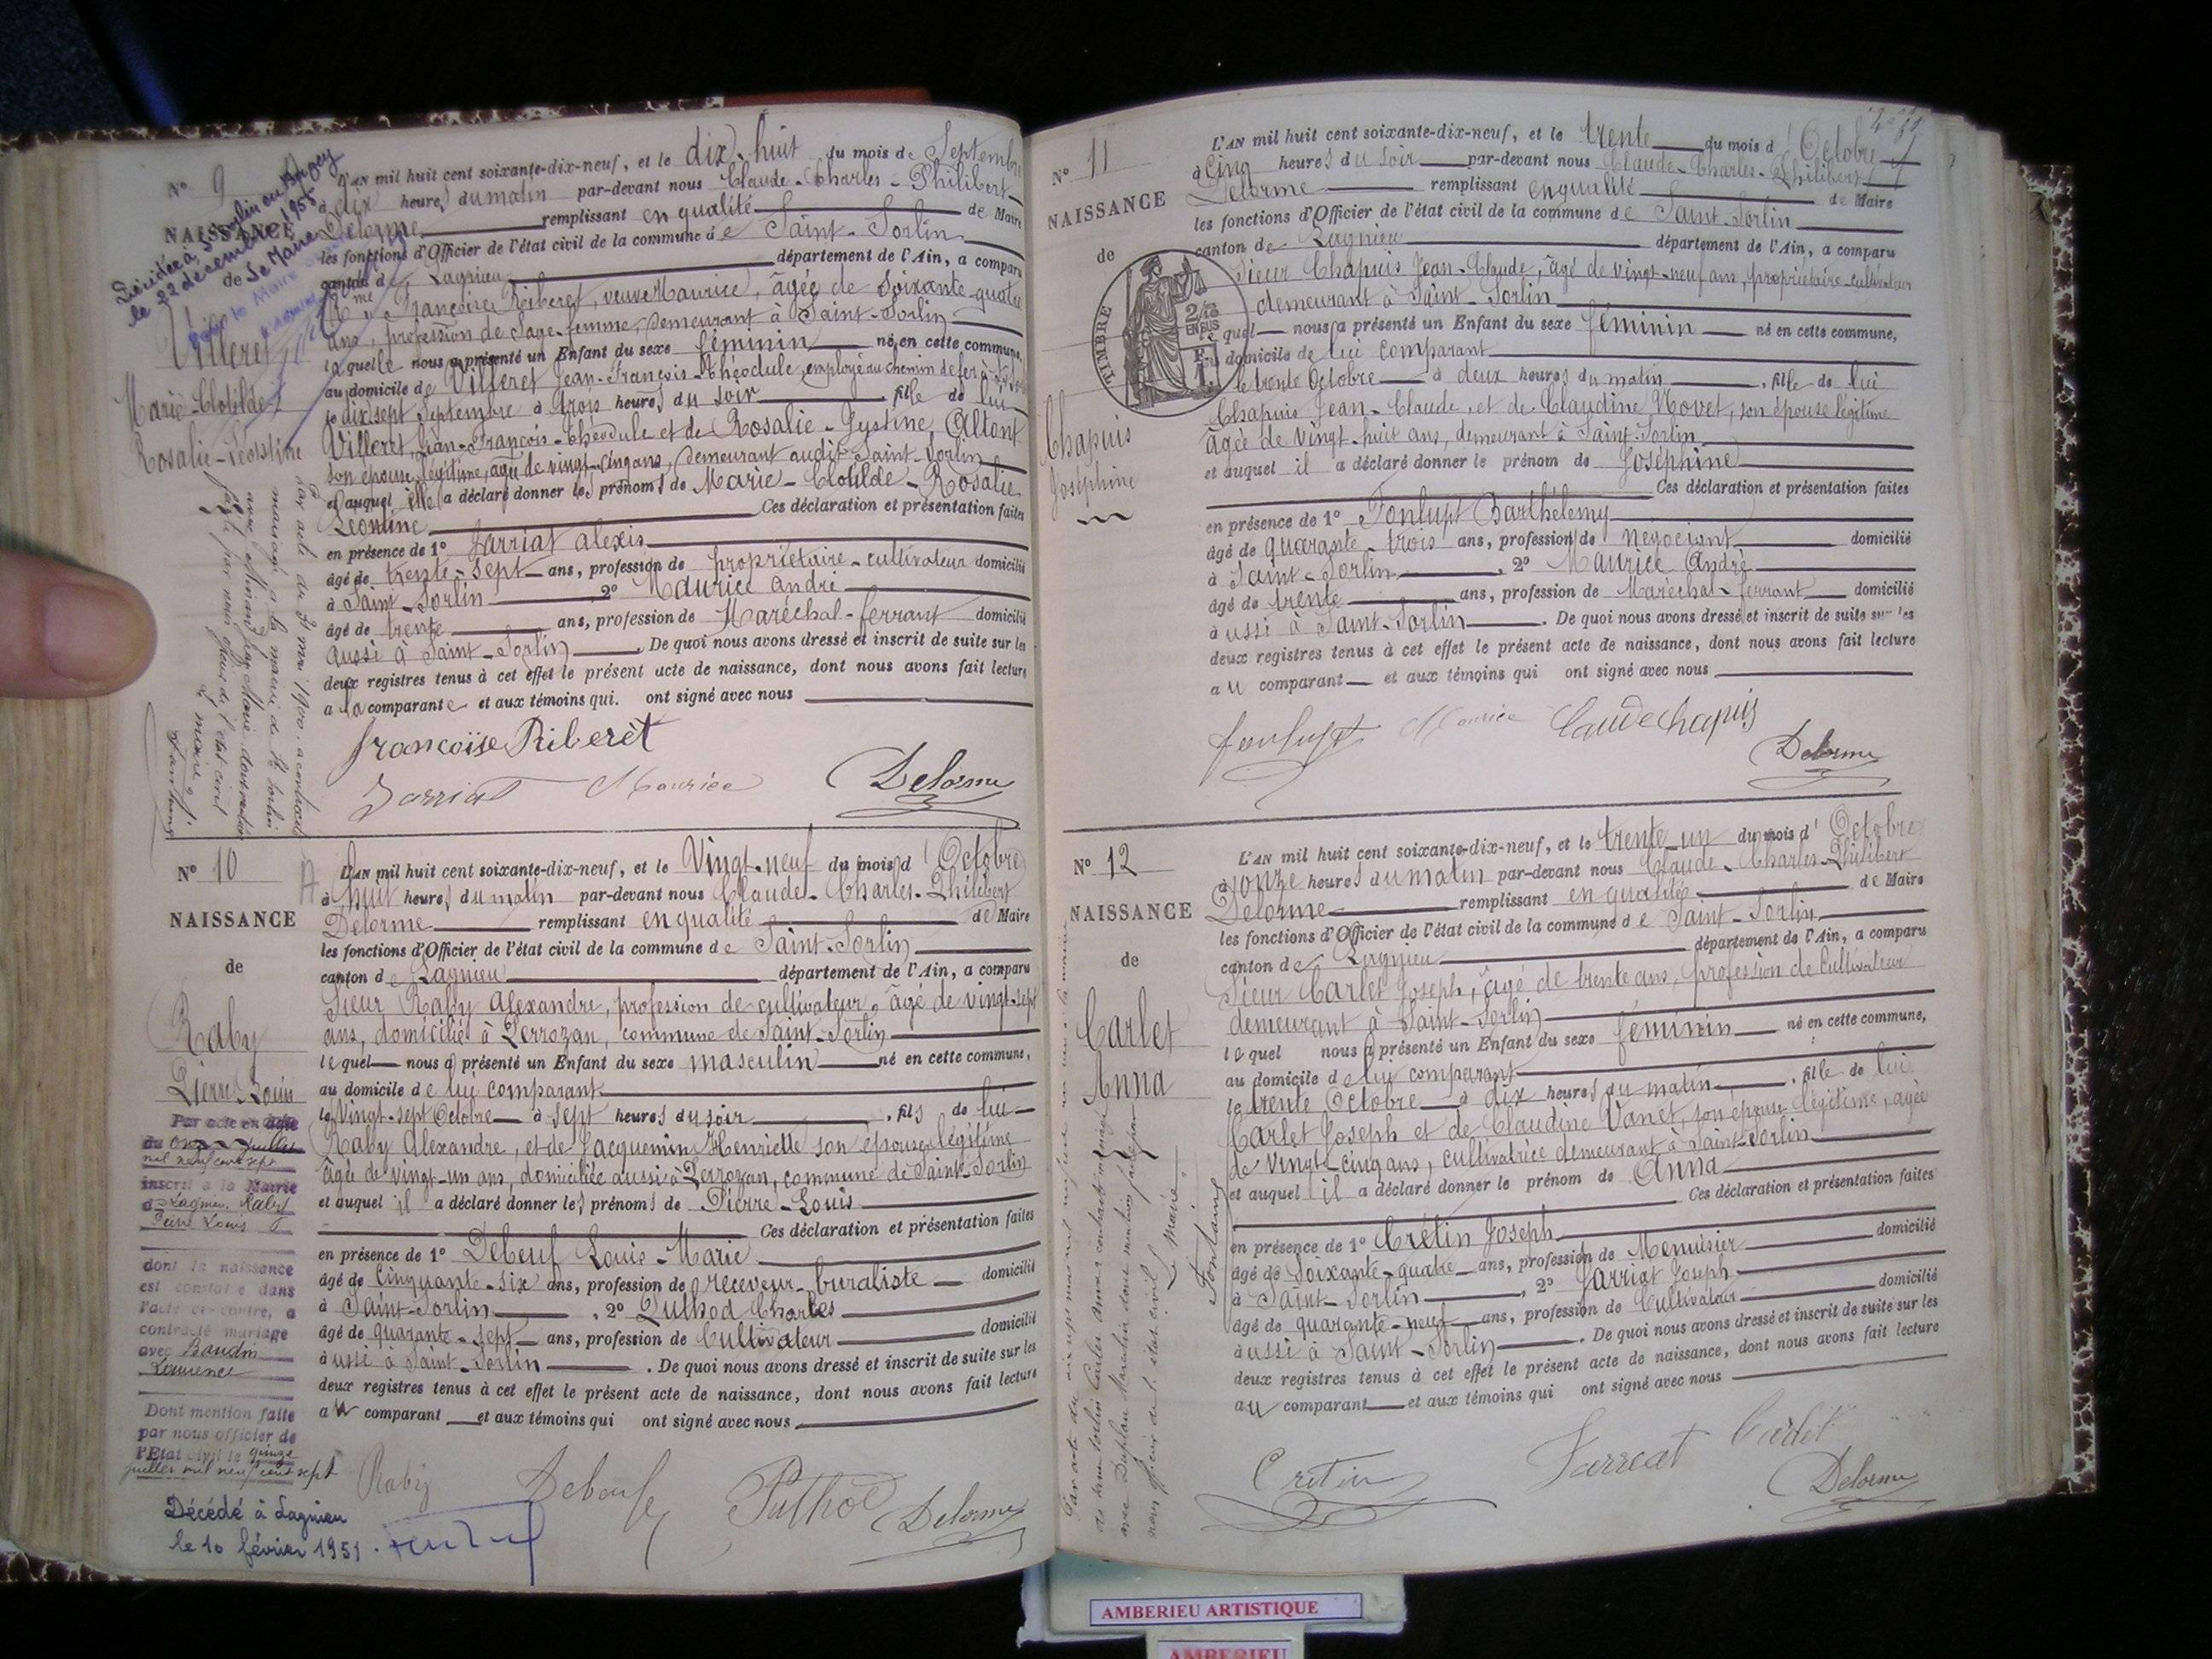 N° 9
NAISSANCE
de
Villeret
Marie-Clotilde
Rosalie-Léontine
Décédée à St Sorlin en Bugey
le 22 décembre 1955
Le Maire
L'AN mil huit cent soixante-dix-neuf, et le dix-huit du mois de Septembre
à dix heures du matin par-devant nous Claude-Charles-Philibert
Delorme remplissant en qualité de Maire
les fonctions d'Officier de l'état civil de la commune de Saint-Sorlin
canton de Lagnieu département de l'Ain, a comparu
Mme Françoise Riberet, veuve Maurice, âgée de soixante-quatre
ans, profession de Sage-femme, demeurant à Saint-Sorlin
laquelle nous a présenté un Enfant du sexe féminin né en cette commune,
au domicile de Villeret Jean-François-Théodule, employé au chemin de fer
le dix-sept Septembre à trois heures du soir fille de lui
Villeret Jean-François-Théodule et de Rosalie
son épouse légitime, âgée de vingt-cinq ans, demeurant audit Saint-Sorlin
et auquel elle a déclaré donner les prénoms de Marie-Clotilde-Rosalie
Léontine Ces déclaration et présentation faites
en présence de 1° Jarriat Alexis
âgé de trente-sept ans, profession de propriétaire-cultivateur domicilié
à Saint-Sorlin, 2° Maurice André
âgé de trente ans, profession de Maréchal-ferrant domicilié
aussi à Saint-Sorlin. De quoi nous avons dressé et inscrit de suite sur les
deux registres tenus à cet effet le présent acte de naissance, dont nous avons fait lecture
a la comparante et aux témoins qui ont signé avec nous
Françoise Riberet
Jarriat Maurice Delorme
Par acte du 3 mai 1900, a contracté
mariage à la mairie de St Sorlin
Le maire,
N° 10
NAISSANCE
de
Raby
Pierre-Louis
Par acte en date
du onze juillet
mil neuf cent sept
inscrit à la Mairie
de Lagnieu, Raby
Pierre Louis
dont la naissance
est constatée dans
l'acte ci-contre, a
contracté mariage
avec Baudin
Laurence
Dont mention faite
par nous officier de
l'Etat civil le quinze
juillet mil neuf cent sept
Décédé à Lagnieu
le 10 février 1951.
L'AN mil huit cent soixante-dix-neuf, et le Vingt-neuf du mois d'Octobre
à huit heures du matin par-devant nous Claude-Charles-Philibert
Delorme remplissant en qualité de Maire
les fonctions d'Officier de l'état civil de la commune de Saint-Sorlin
canton de Lagnieu département de l'Ain, a comparu
Sieur Raby Alexandre, profession de cultivateur, âgé de vingt-sept
ans, domicilié à Perrozan, commune de Saint-Sorlin
lequel nous a présenté un Enfant du sexe masculin né en cette commune,
au domicile de lui comparant
le Vingt-sept Octobre à sept heures du soir, fils de lui
Raby Alexandre, et de Jacquemin Henriette son épouse légitime
âgée de vingt-un ans, domiciliée aussi à Perrozan, commune de Saint-Sorlin
et auquel il a déclaré donner les prénoms de Pierre-Louis
Ces déclaration et présentation faites
en présence de 1° Debeuf Louis-Marie
âgé de Cinquante-six ans, profession de receveur-buraliste domicilié
à Saint-Sorlin, 2° Puthod Charles
âgé de quarante-sept ans, profession de Cultivateur domicilié
aussi à Saint-Sorlin. De quoi nous avons dressé et inscrit de suite sur les
deux registres tenus à cet effet le présent acte de naissance, dont nous avons fait lecture
au comparant et aux témoins qui ont signé avec nous
Raby Debeuf Puthod Delorme
N° 11
NAISSANCE
de
TIMBRE
Chapuis
Joséphine
L'AN mil huit cent soixante-dix-neuf, et le trente du mois d'Octobre
à Cinq heures du soir par-devant nous Claude-Charles-Philibert
Delorme remplissant en qualité de Maire
les fonctions d'Officier de l'état civil de la commune de Saint-Sorlin
canton de Lagnieu département de l'Ain, a comparu
Sieur Chapuis Jean-Claude, âgé de vingt-neuf ans, propriétaire-cultivateur
demeurant à Saint-Sorlin
lequel nous a présenté un Enfant du sexe féminin né en cette commune,
au domicile de lui comparant
le trente Octobre à deux heures du matin, fille de lui
Chapuis Jean-Claude, et de Claudine Novet, son épouse légitime
âgée de vingt-huit ans, demeurant à Saint-Sorlin
et auquel il a déclaré donner le prénom de Joséphine
Ces déclaration et présentation faites
en présence de 1° Fonlupt Barthélemy
âgé de quarante-trois ans, profession de négociant domicilié
à Saint-Sorlin, 2° Maurice André
âgé de trente ans, profession de Maréchal-ferrant domicilié
aussi à Saint-Sorlin. De quoi nous avons dressé et inscrit de suite sur les
deux registres tenus à cet effet le présent acte de naissance, dont nous avons fait lecture
au comparant et aux témoins qui ont signé avec nous
fonlupt Maurice Claude Chapuis
Delorme
N° 12
NAISSANCE
de
Carlet
Anna
Le Maire,
L'AN mil huit cent soixante-dix-neuf, et le trente-un du mois d'Octobre
à onze heures du matin par-devant nous Claude-Charles-Philibert
Delorme remplissant en qualité de Maire
les fonctions d'Officier de l'état civil de la commune de Saint-Sorlin
canton de Lagnieu département de l'Ain, a comparu
Sieur Carlet Joseph, âgé de trente ans, profession de Cultivateur
demeurant à Saint-Sorlin
lequel nous a présenté un Enfant du sexe féminin né en cette commune,
au domicile de lui comparant
le trente Octobre à dix heures du matin, fille de lui
Carlet Joseph et de Claudine Vanet, son épouse légitime, âgée
de vingt-cinq ans, cultivatrice demeurant à Saint-Sorlin
et auquel il a déclaré donner le prénom de Anna
Ces déclaration et présentation faites
en présence de 1° Crétin Joseph domicilié
âgé de Soixante-quatre ans, profession de Menuisier
à Saint-Sorlin, 2° Jarriat Joseph
âgé de quarante-neuf ans, profession de Cultivateur domicilié
aussi à Saint-Sorlin. De quoi nous avons dressé et inscrit de suite sur les
deux registres tenus à cet effet le présent acte de naissance, dont nous avons fait lecture
au comparant et aux témoins qui ont signé avec nous
Cretin Jarreat Carlet
Delorme
AMBERIEU ARTISTIQUE
AMBERIEU